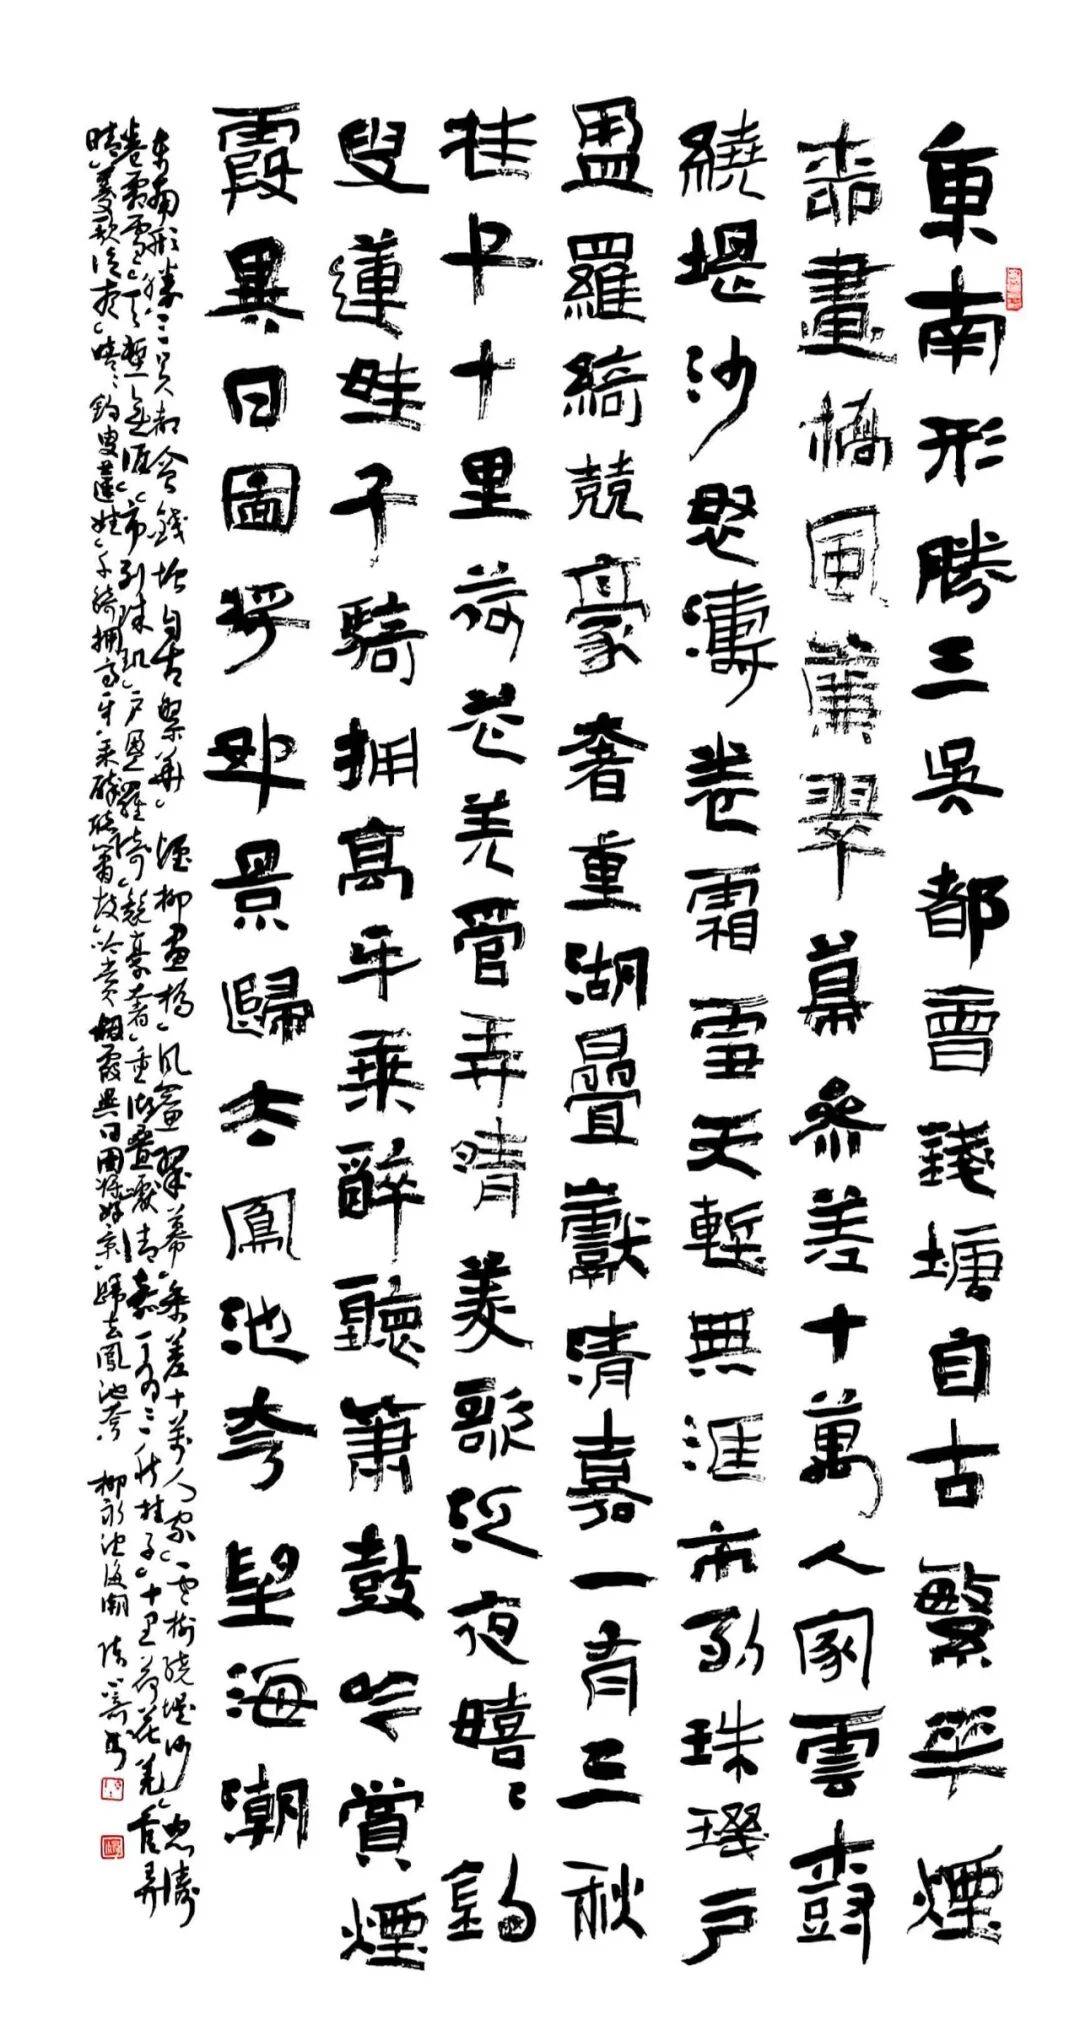 東南形勝三吳都會錢塘自古繁華煙
柳畫橋風簾翠幕參差十萬人家雲樹
繞堤沙怒濤卷霜雪天塹無涯市列珠璣戶
盈羅綺競豪奢重湖疊巘清嘉一有三秋
桂子十里荷花羌管弄晴菱歌泛夜暿〻釣
叟蓮娃千騎擁高牙乘醉聽簫鼓吟賞煙
霞異日圖將好景歸去鳳池夸望海潮
東南形勝三吳都會錢塘自古繁華煙柳畫橋風簾翠幕參差十萬人家雲樹繞堤沙怒濤
卷霜雪天塹無涯市列珠璣戶盈羅綺競豪奢重湖疊巘清嘉有三秋桂子十里荷花羌管弄
晴菱歌泛夜暿〻釣叟蓮娃千騎擁高牙乘醉聽簫鼓吟賞煙霞異日圖將好景歸去鳳池夸 柳永望海潮 書